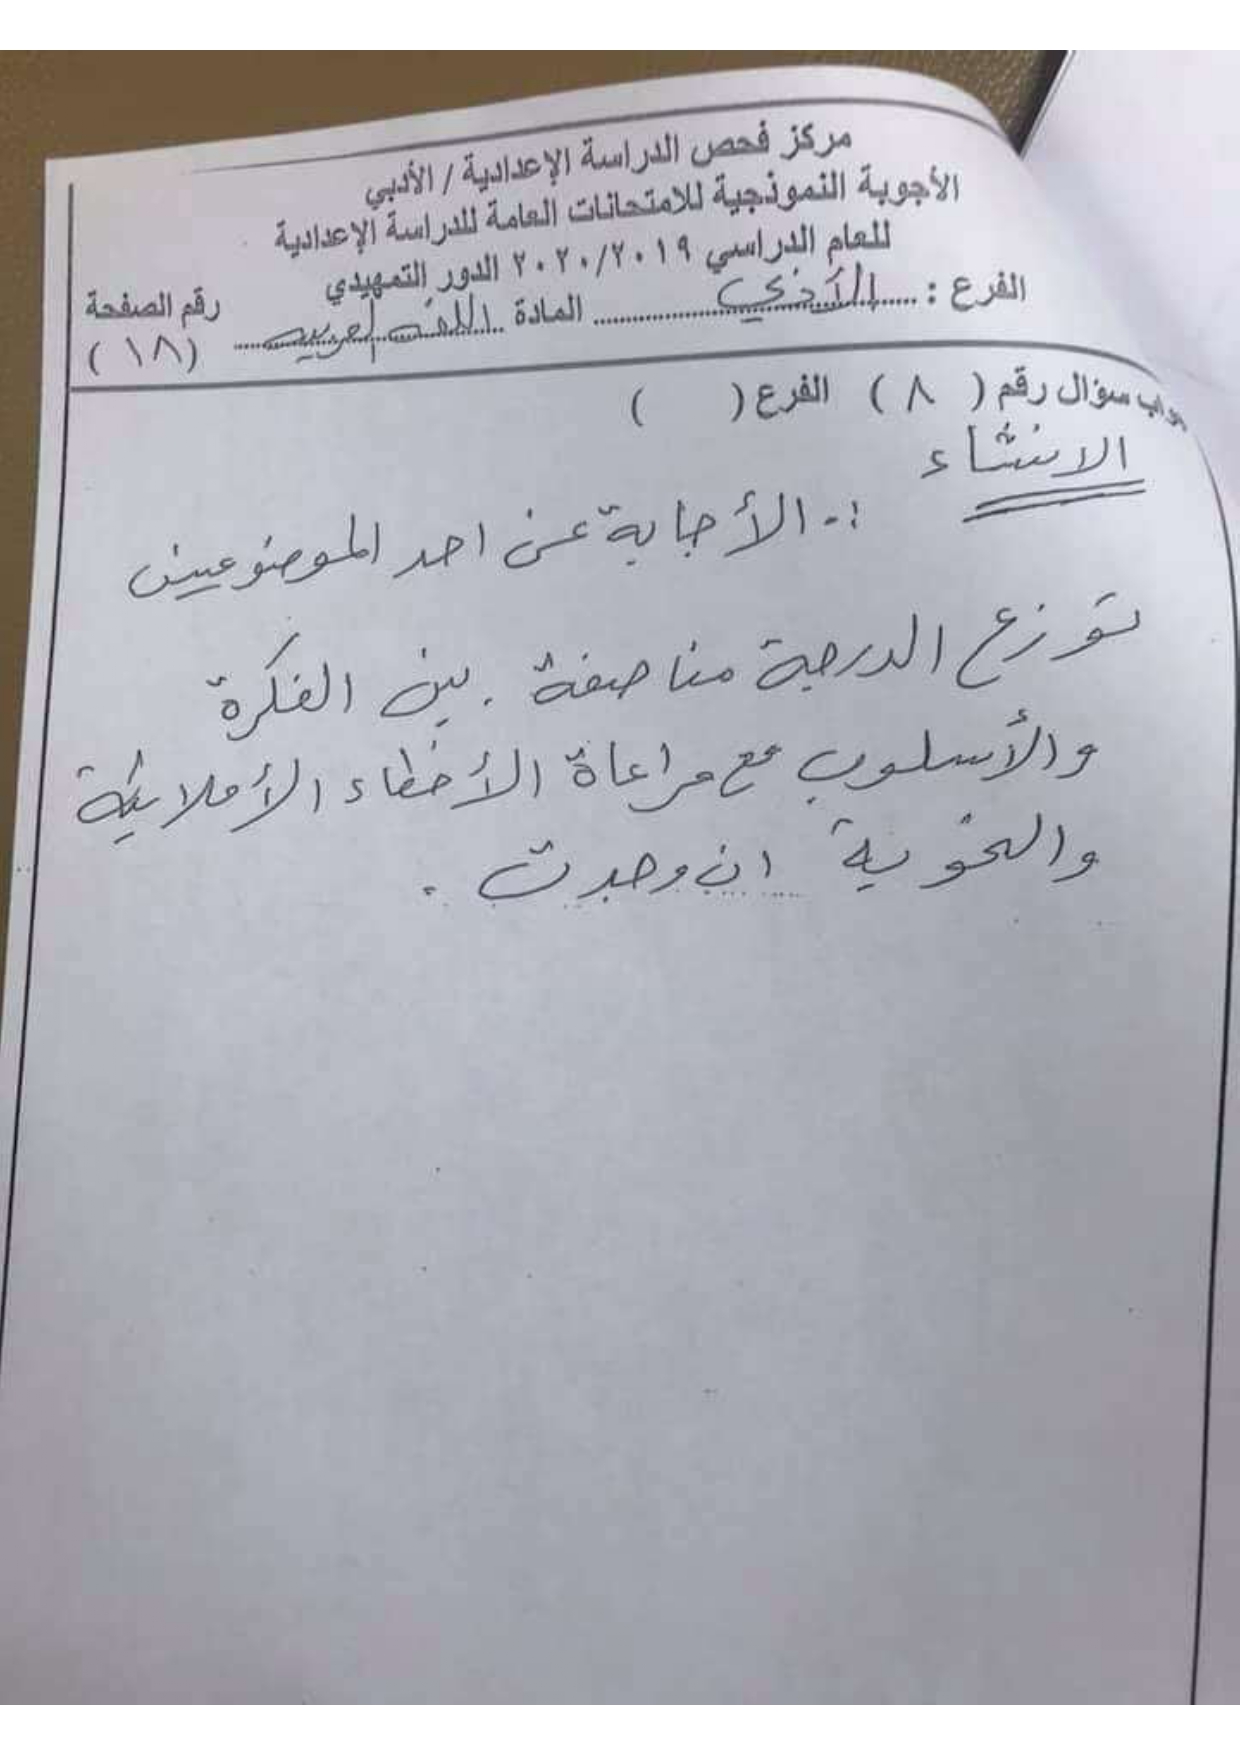 مركز فحص الدراسة الإعدادية / الأدبي
الأجوبة النموذجية للامتحانات العامة للدراسة الإعدادية
للعام الدراسي ٢٠٢٠/٢٠١٩ الدور التمهيدي
الفرع : ........ المادة اللغة العربية رقم الصفحة
(١٨)
جواب سؤال رقم ( ٨ ) الفرع ( )
الانشاء
:- الأجابة عن احد الموضوعين
توزع الدرجة مناصفة بين الفكرة
والأسلوب مع مراعاة الأخطاء الأملائية
والنحوية ان وجدت .